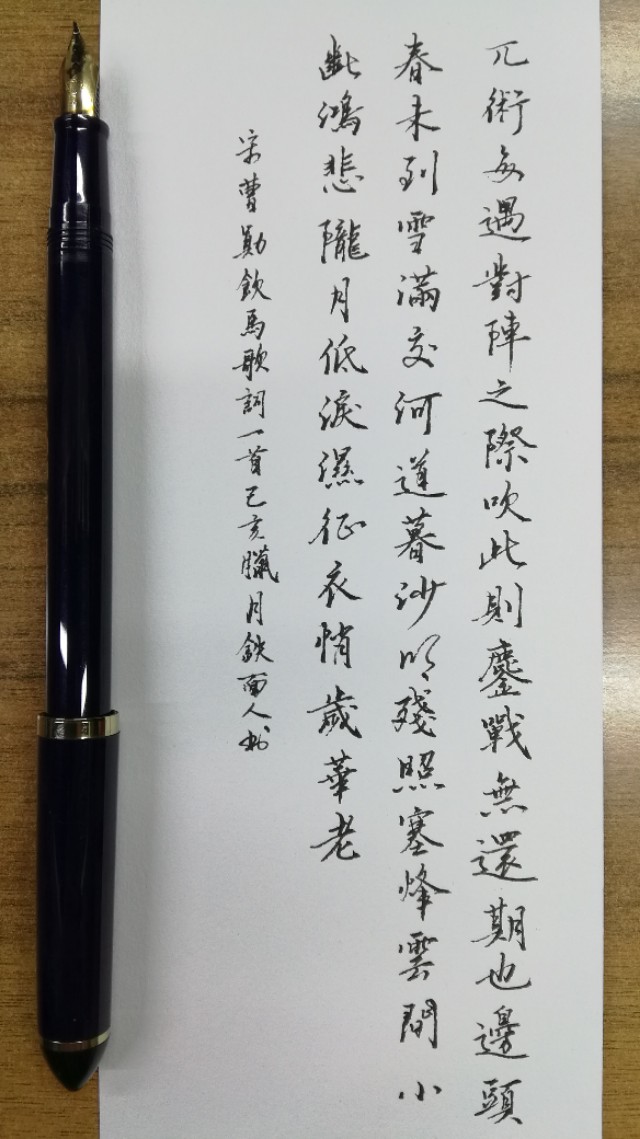 兀術每遇對陣之際吹此則鏖戰無還期也邊頭
春未到雪滿交河道暮沙明殘照塞烽雲間小
斷鴻悲隴月低淚濕征衣悄歲華老
宋曹勛飲馬歌詞一首己亥臘月鉄面人書